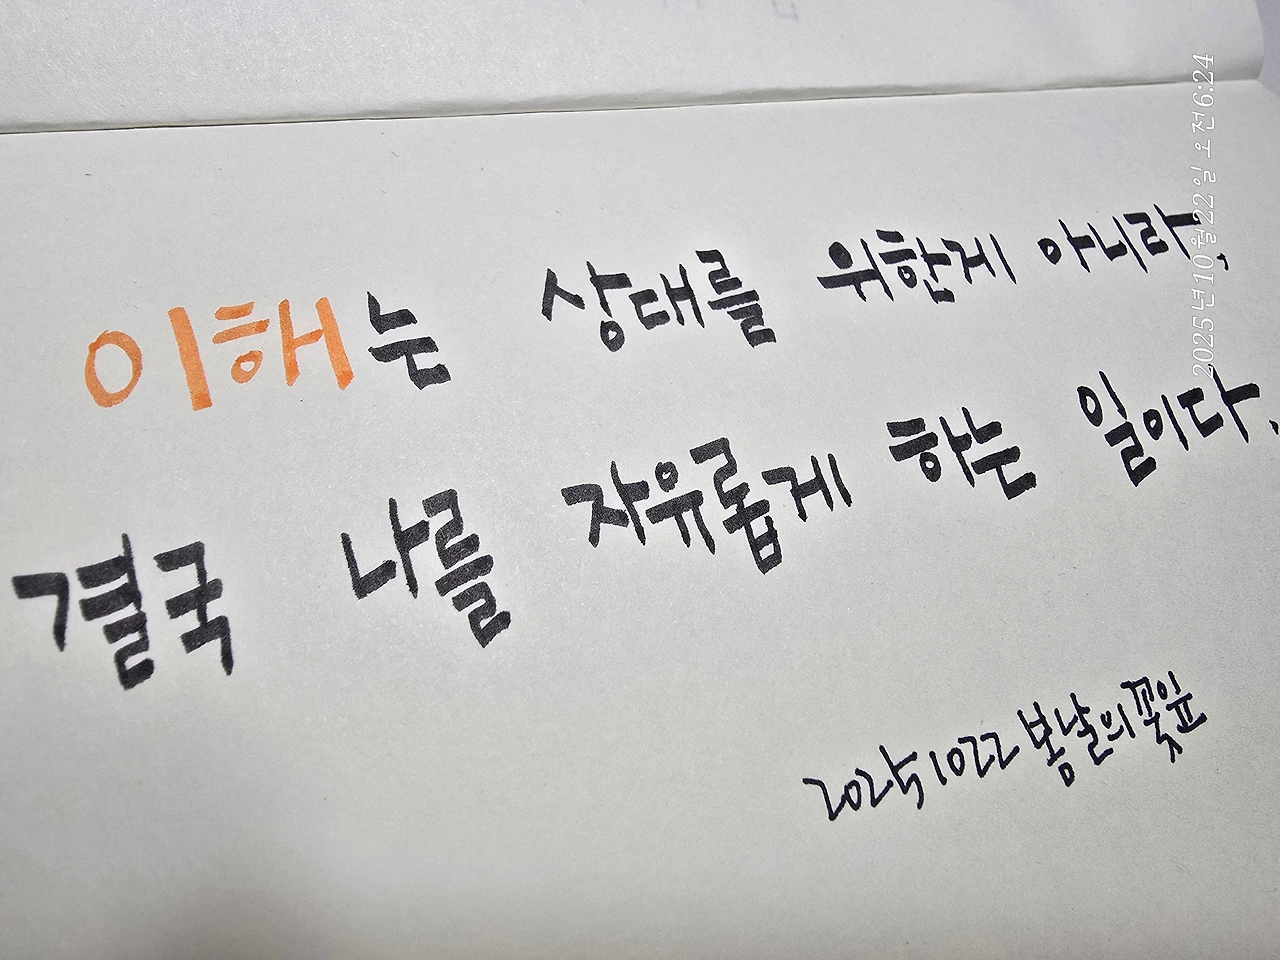 이해는 상대를 위한게 아니라,
결국 나를 자유롭게 하는 일이다.
20251022 봄날의꽃잎
2025년10월22일 오전6:24